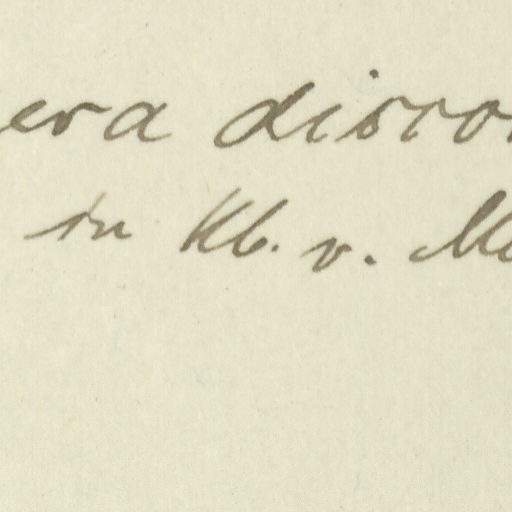 era discor
in Kb. v. Me